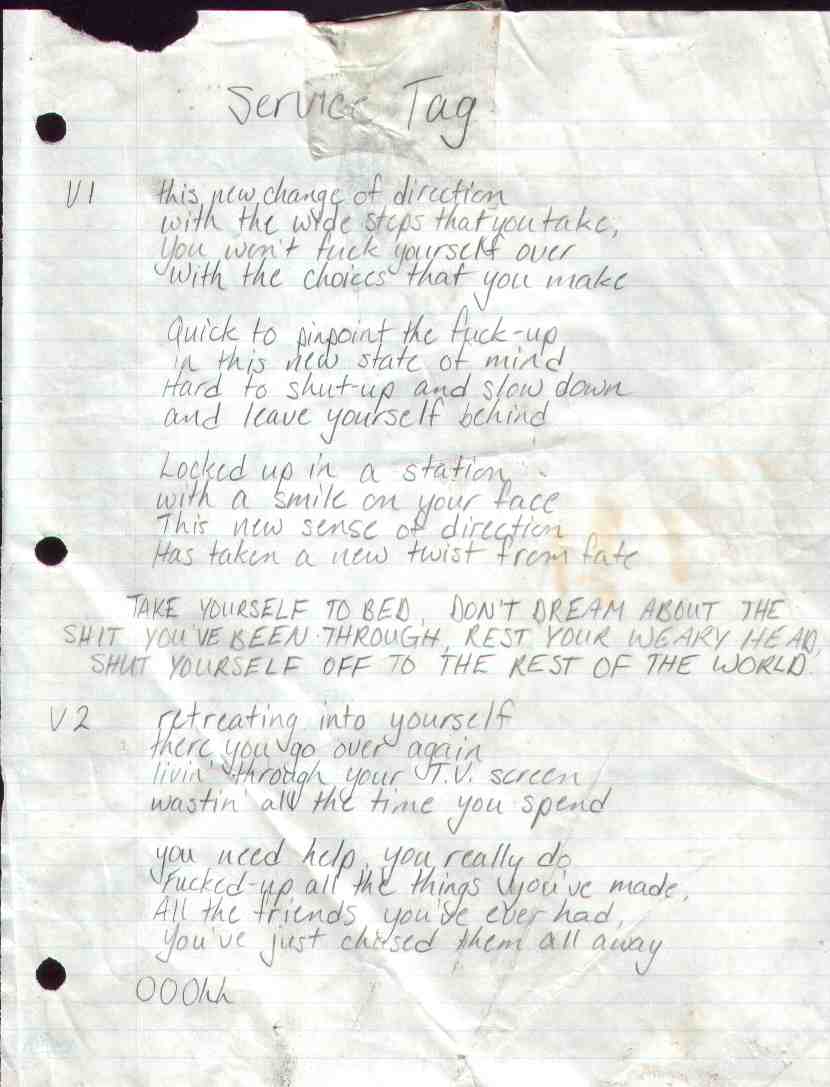 Service Tag
V1 this new change of direction
with the wide steps that you take,
you won't fuck yourself over
with the choices that you make
Quick to pinpoint the fuck-up
in this new state of mind
Hard to shut-up and slow down
and leave yourself behind
Locked up in a station
with a smile on your face
This new sense of direction
Has taken a new twist from fate
TAKE YOURSELF TO BED, DON'T DREAM ABOUT THE
SHIT YOU'VE BEEN THROUGH, REST YOUR WEARY HEAD,
SHUT YOURSELF OFF TO THE REST OF THE WORLD.
V2 retreating into yourself
there you go over again
livin' through your T.V. screen
wastin' all the time you spend
you need help, you really do
Fucked-up all the things you've made,
All the friends you've ever had,
you've just chased them all away
OOOhh